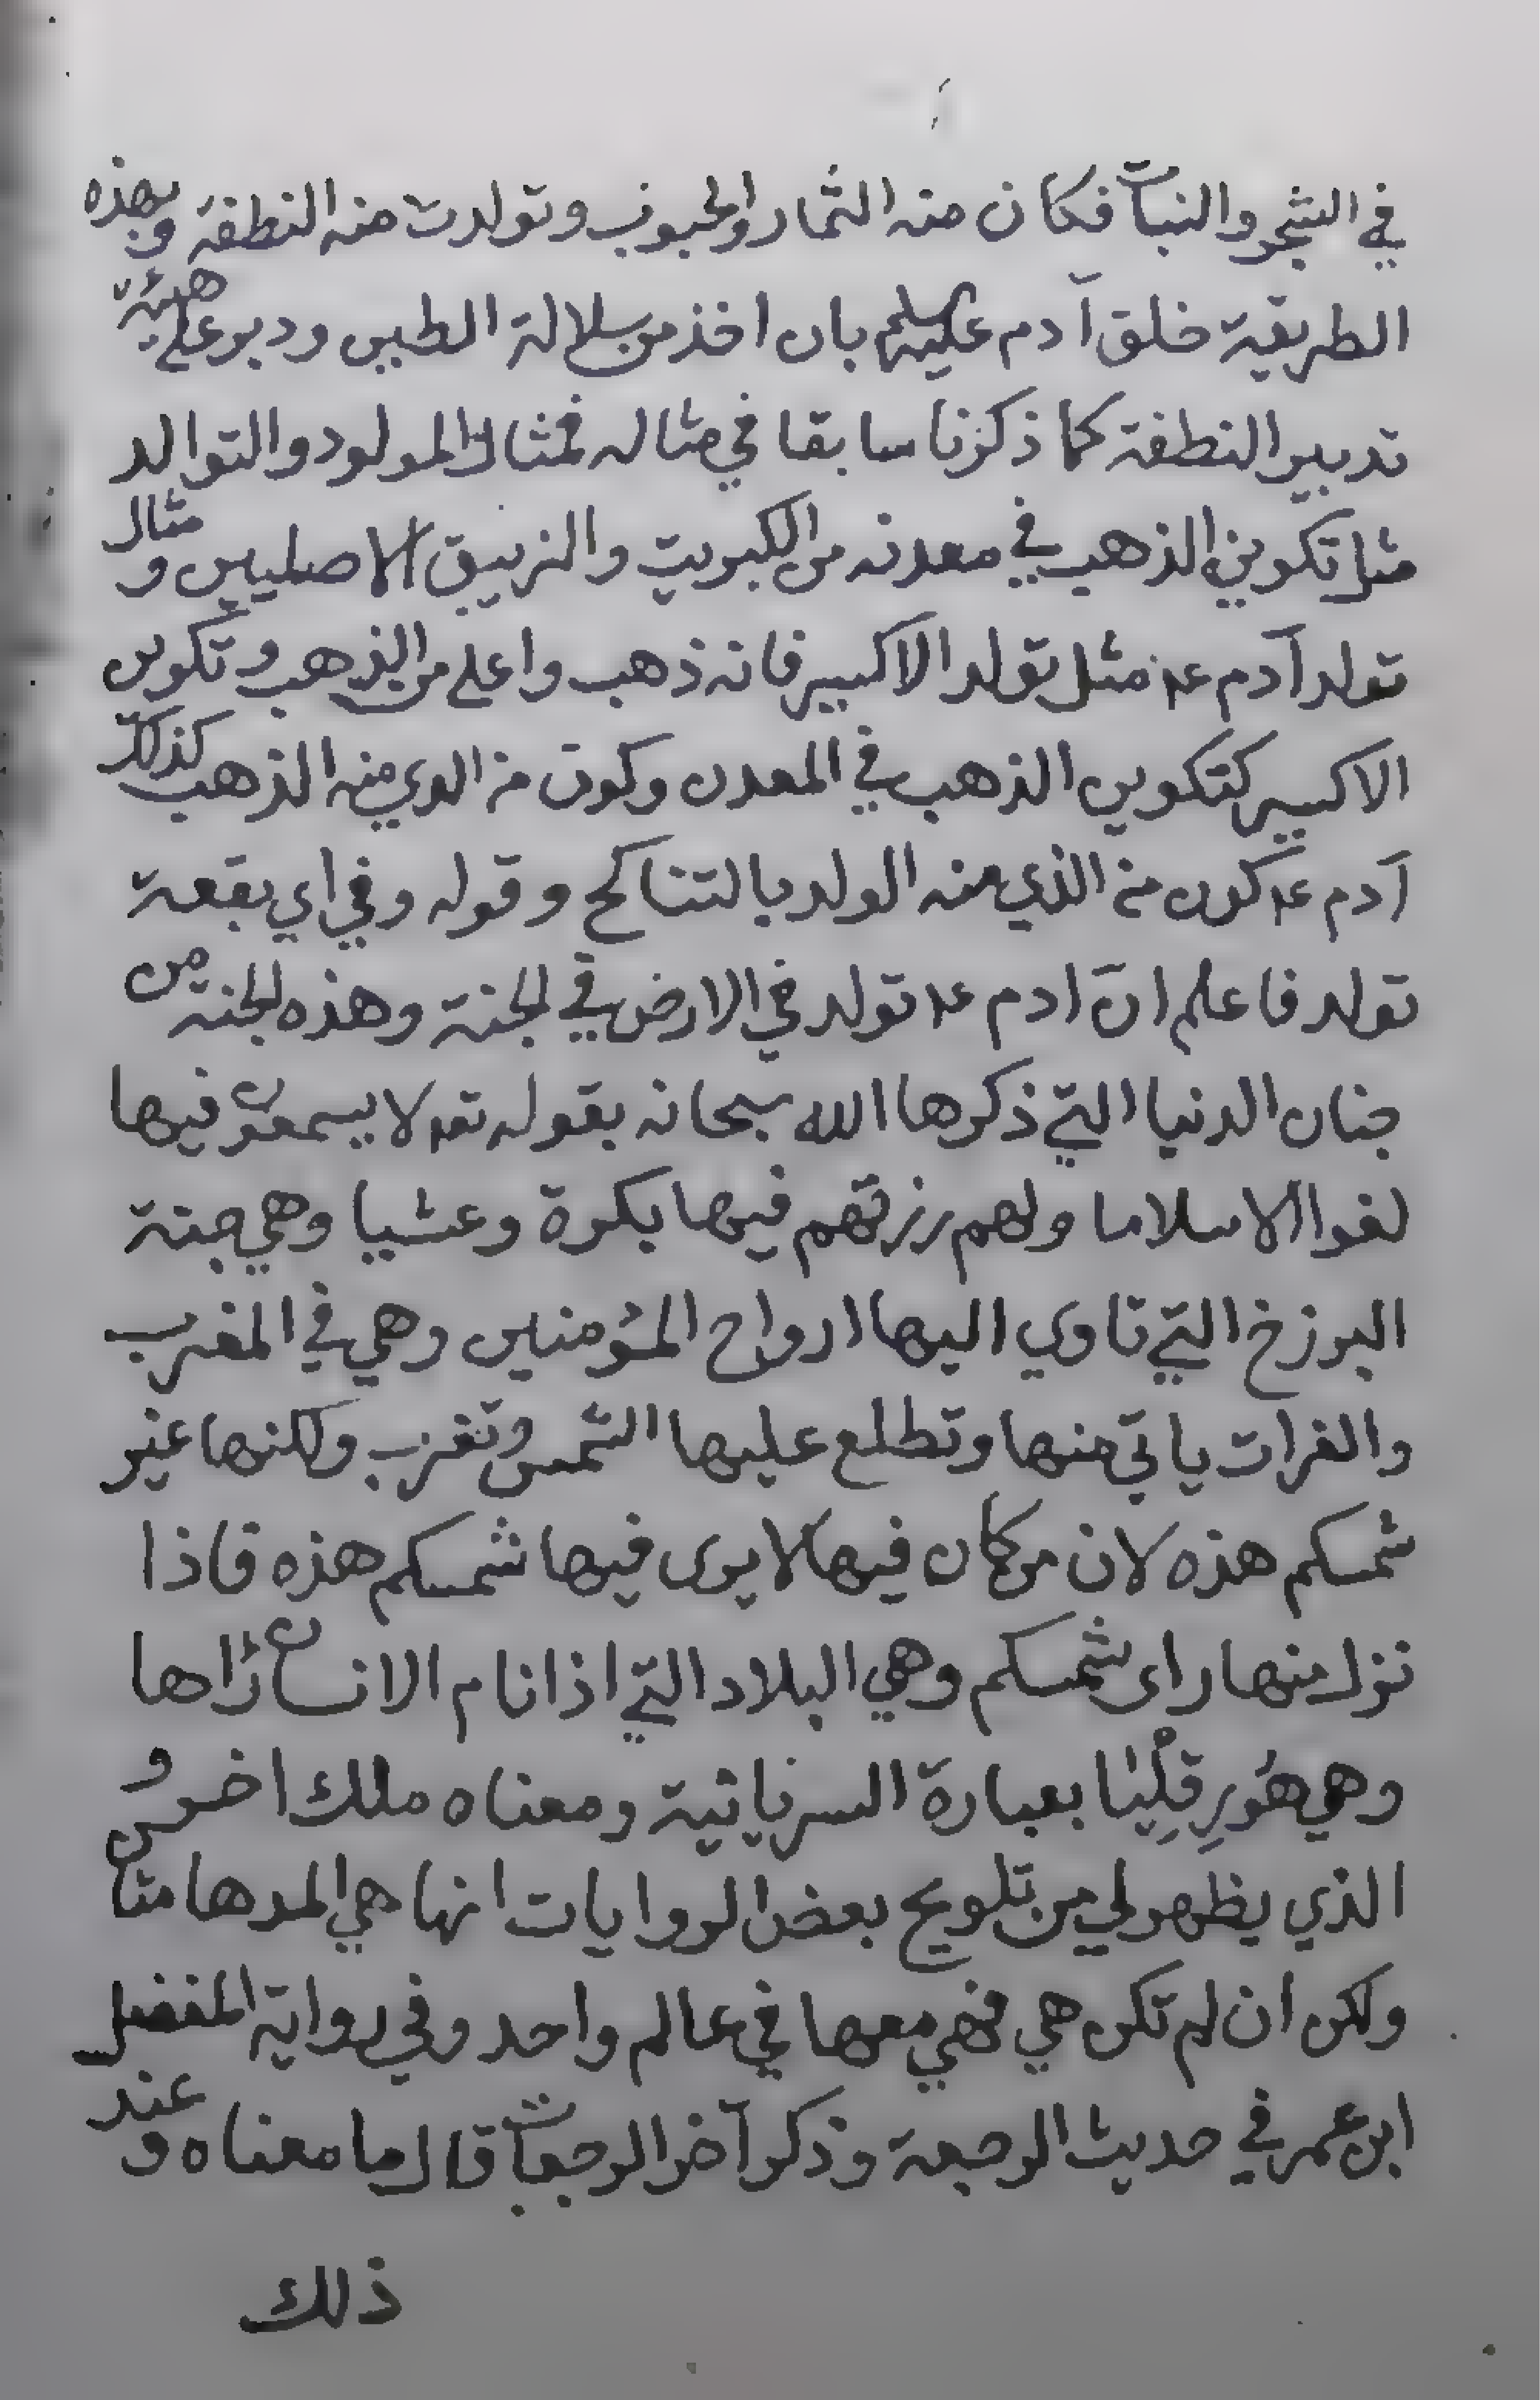 في الشجر والنبات فكان منه الثمار والحبوب وتولدت منه النطفة وبهذه
الطريقة خلق آدم عليه السلم بان اخذ من سلالة الطين ودبر على هيئة
تدبير النطفة كما ذكرنا سابقا في مثاله فمثال المولود والتوالد
مثل تكوين الذهب في معدنه من الكبريت والزيبق الاصليين و مثال
تولد آدم عه مثل تولد الاكسير فانه ذهب واعلى من الذهب وتكوين
الاكسير كتكوين الذهب في المعدن وكون من الذي منه الذهب كذلك
آدم عه كون من الذي منه الولد بالتناكح وقوله وفي اي بقعة
تولد فاعلم انّ ادم عه تولد في الارض في الجنة وهذه الجنة من
جنان الدنيا التي ذكرها الله سبحانه بقوله تعه لا يسمعون فيها
لغوا الا سلاما ولهم رزقهم فيها بكرة وعشيا وهي جنة
البرزخ التي تاوي اليها ارواح المؤمنين وهي في المغرب
والفرات ياتي منها وتطلع عليها الشمس وتغرب ولكنها غير
شمسكم هذه لان من كان فيها لا يرى فيها شمسكم هذه فاذا
نزل منها راى شمسكم وهي البلاد التي اذا نام الانسان رٰاها
وهي هُورِقِلْيٰا بعبارة السريانية ومعناه ملك اخر و
الذي يظهر لي من تلويح بعض الروايات انها هي المدهامتان
ولكن ان لم تكن هي فهي معها في عالم واحد وفي رواية المفضل
ابن عمر في حديث الرجعة وذكر آخر الرجعات قال ما معناه و عند
ذلك